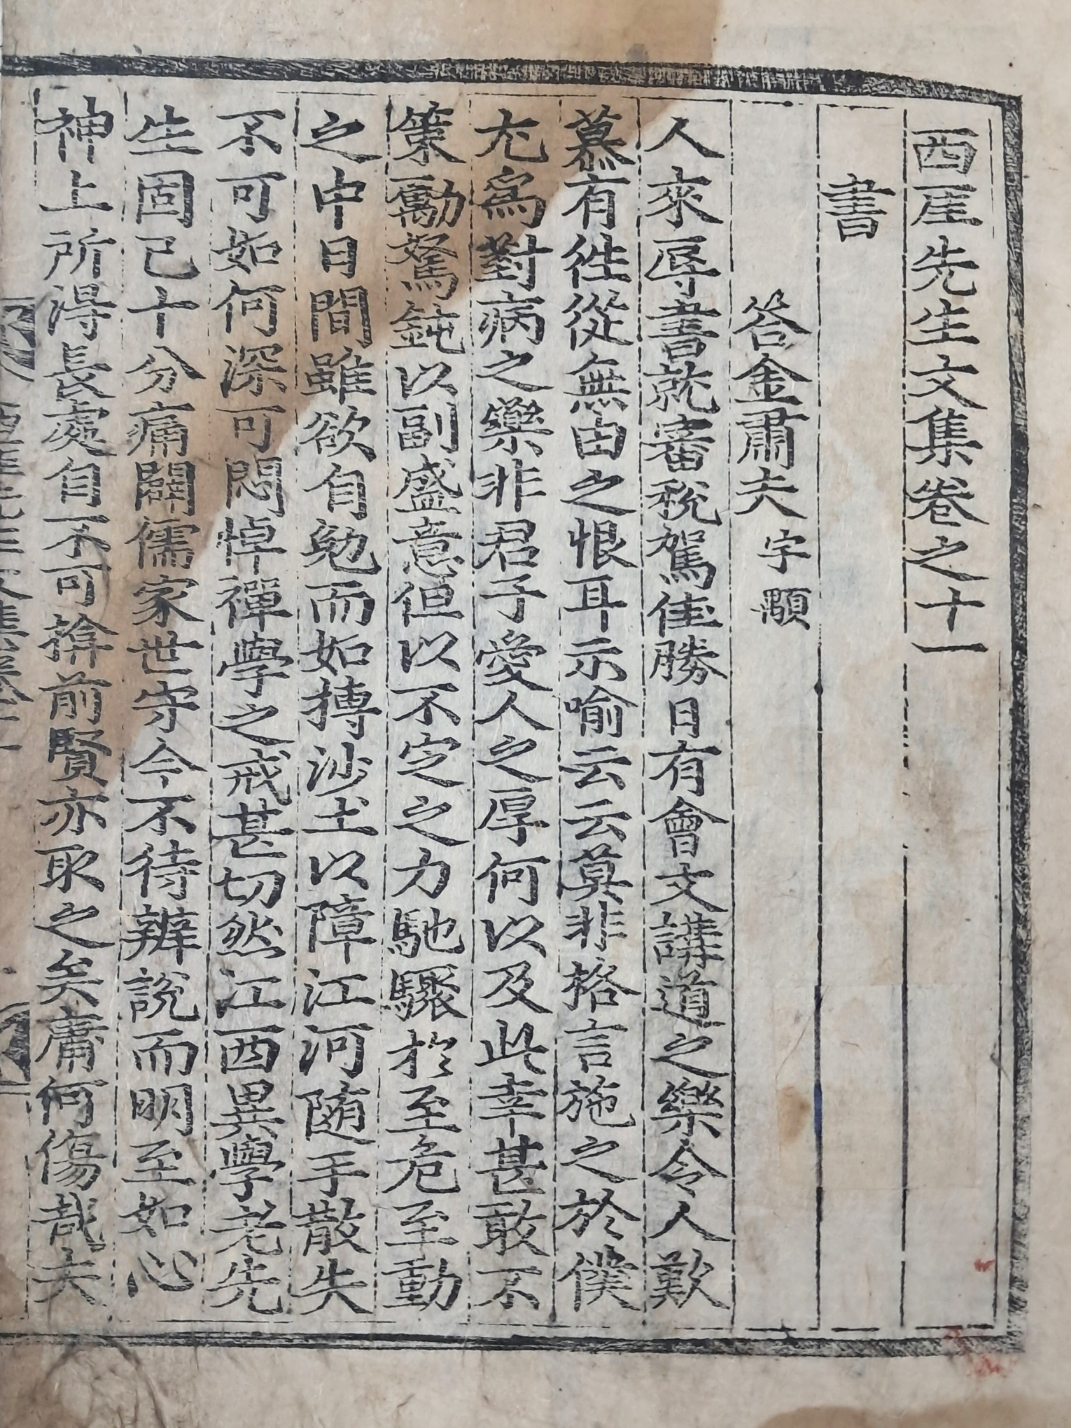 西厓先生文集卷之十一
書
答金肅夫 宇顒
人來辱書就審稅駕佳勝日有會文講道之樂令人歎
慕有徃從無由之恨耳示喻云云莫非格言施之於僕
尤爲對病之藥非君子愛人之厚何以及此幸甚敢不
策勵駑鈍以副盛意但以不定之力馳驟於至危至動
之中日間雖欲自勉而如摶沙土以障江河随手散失
不可如何深可悶悼禪學之戒甚切然江西異學老先
生固已十分痛闢儒家世守今不待辨說而明至如心
神上所得長處自不可揜前賢亦取之矣庸何傷哉夫